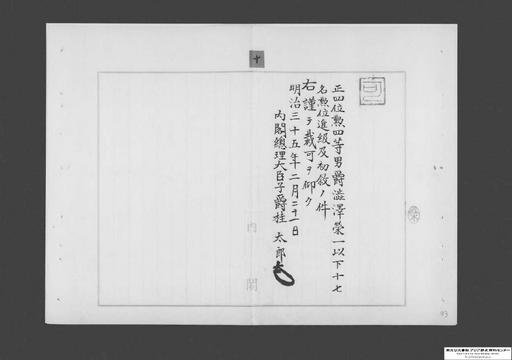 十
正四位勲四等男爵澁澤榮一以下十七
名勲位進級及初敍ノ件
右謹テ裁可ヲ仰ク
明治三十五年二月二十一日
内閣總理大臣子爵桂太郎
内閣